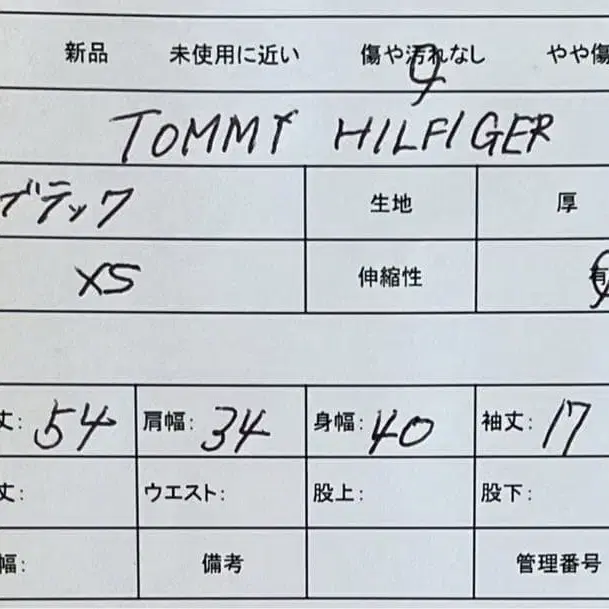 新品 未使用に近い 傷や汚れなし やや傷
TOMMY HILFIGER
ブラック 生地 厚
XS 伸縮性 有
丈: 54 肩幅: 34 身幅: 40 袖丈: 17
丈: ウエスト: 股上: 股下:
幅: 備考 管理番号